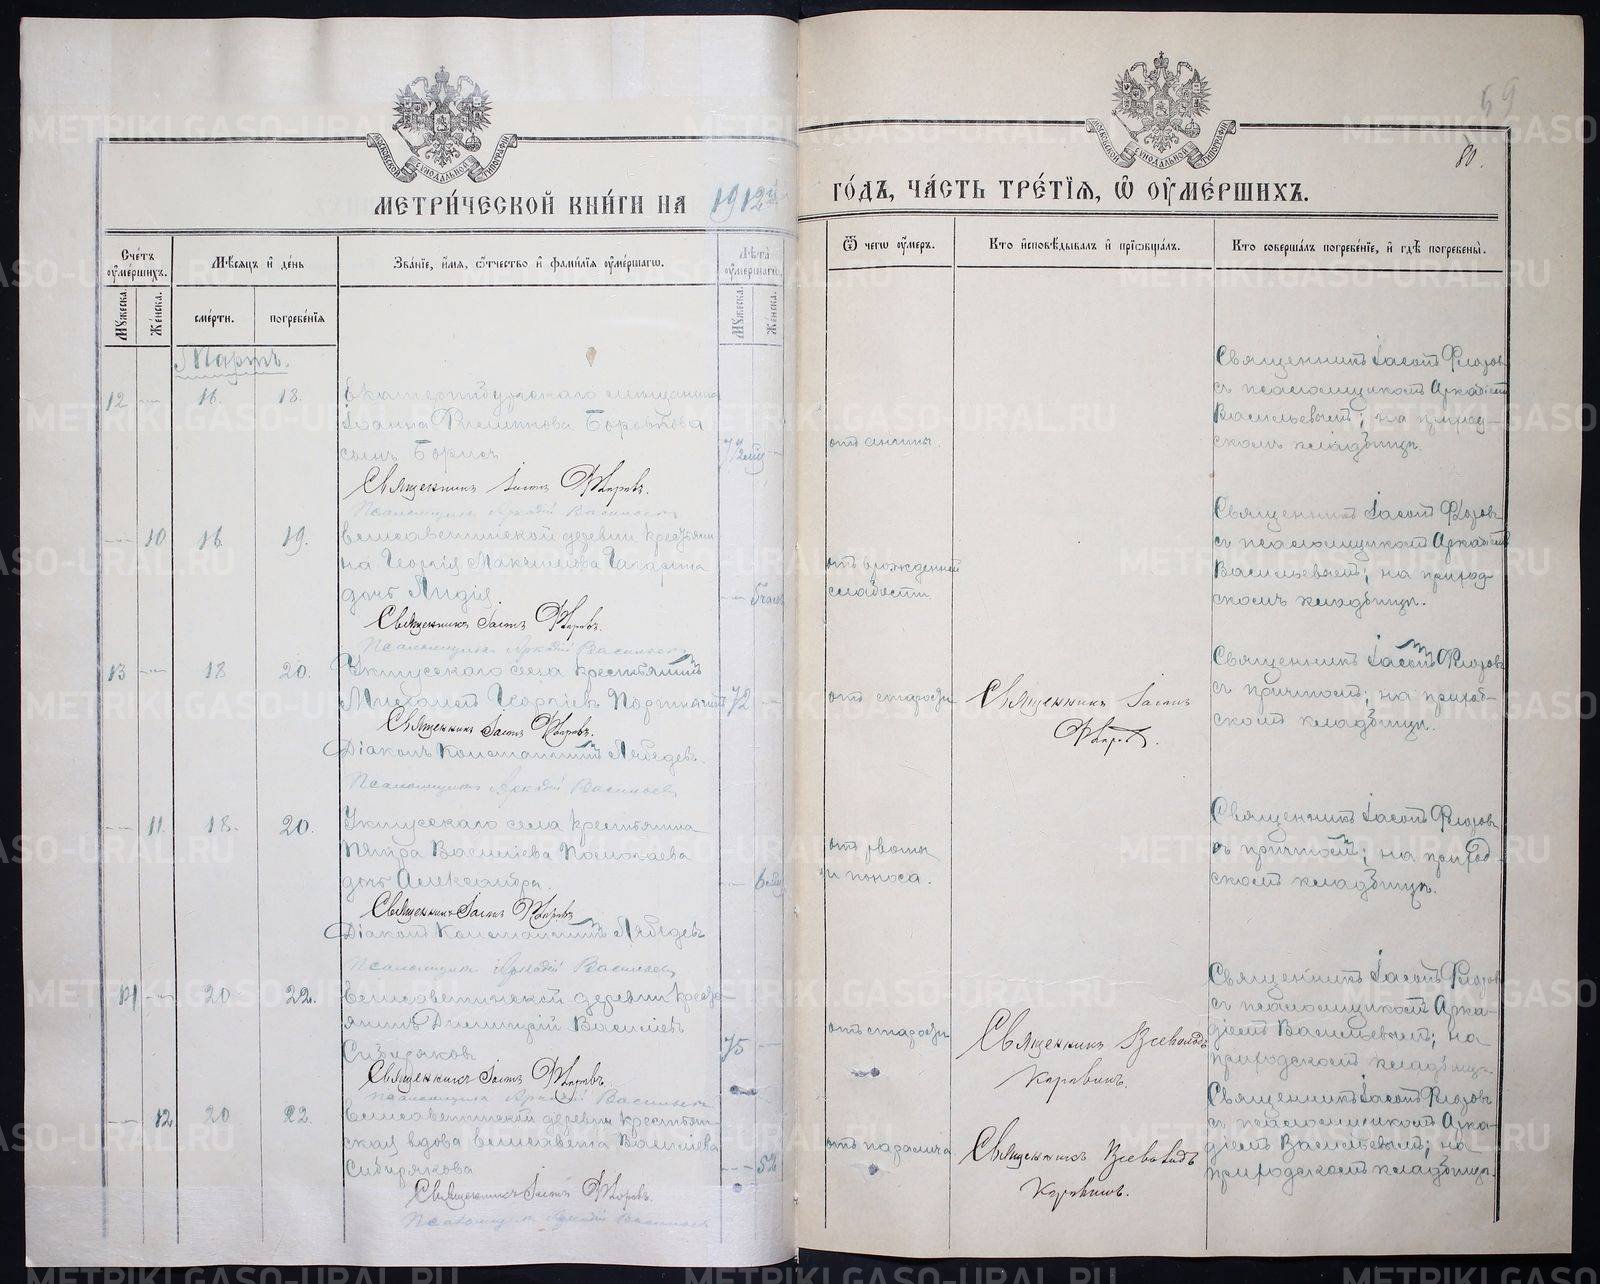 МЕТРИ́ЧЕСКОЙ КНИ́ГИ НА 1912й
ГО́ДЪ, ЧА́СТЬ ТРЕ́ТЇѦ, Ѡ҆ ОУ҆МЕ́РШИХЪ.
59
80.
Сче́тъ оу҆ме́ршихъ.
Мꙋ́жеска.
Же́нска.
Мѣ́сѧцъ и҆ де́нь
сме́рти.
погребе́нїѧ
Зва́нїе, и҆́мѧ, ѻ҆́тчество и҆ фами́лїѧ оу҆ме́ршагѡ.
Лѣ̀та оу҆ме́ршагѡ.
Мꙋ́жеска.
Же́нска.
Ѿ чегѡ̀ оу҆́меръ.
Кто̀ и҆сповѣ́дывалъ и҆ прїѡбща́лъ.
Кто̀ соверша́лъ погребе́нїе, и҆ гдѣ̀ погребены̀.
Мартъ.
12 -- 16. 18.
Екатеринбургскаго мѣщанина
Іоанна Филиппова Боровкова
сынъ Борисъ
Священникъ Іасонъ Флоровъ.
Псаломщикъ Аркадій Васильевъ
отъ ангины.
Священникъ Іасонъ Флоровъ
съ псаломщикомъ Аркадіемъ
Васильевымъ; на приход-
скомъ кладбищѣ.
-- 10 16. 19.
Елисаветинской деревни крестьяни
на Георгія Максимова Чагарина
дочь Лидія
-- 5 часов
Священникъ Іасонъ Флоровъ.
Псаломщикъ Аркадій Васильевъ
отъ врожденной
слабости.
Священникъ Іасонъ Флоровъ
съ псаломщикомъ Аркадіемъ
Васильевымъ; на приход-
скомъ кладбищѣ.
13 -- 18 20.
Уктусскаго села крестьянинъ
Михаилъ Георгіевъ
72 --
Священникъ Іасонъ Флоровъ.
Діаконъ Константинъ Лебедевъ.
Псаломщикъ Аркадій Васильевъ
отъ старости
Священникъ Іасонъ
Флоровъ.
Священникъ Іасонъ Флоровъ
съ причтомъ; на приход-
скомъ кладбищѣ.
-- 11. 18. 20.
Уктусскаго села крестьянина
Петра Василіева
дочь Александра.
-- 6
Священникъ Іасонъ Флоровъ
Діаконъ Константинъ Лебедевъ
Псаломщикъ Аркадій Васильевъ
отъ рвоты
и поноса.
Священникъ Іасонъ Флоровъ
съ причтомъ; на приход-
скомъ кладбищѣ.
14 -- 20 22.
Елисаветинской деревни кресть-
янинъ Димитрій Василіевъ
Сибиряковъ
75 --
Священникъ Іасонъ Флоровъ
Псаломщикъ Аркадій Васильевъ
отъ старости
Священникъ Всеволодъ
Коровинъ.
Священникъ Іасонъ Флоровъ
съ псаломщикомъ Арка-
діемъ Васильевымъ; на
приходскомъ кладбищѣ.
-- 12 20 22.
Елисаветинской деревни крестьян-
ская вдова Елисавета Василіева
Сибирякова
-- 52
Священникъ Іасонъ Флоровъ.
Псаломщикъ Аркадій Васильевъ
отъ паралича
Священникъ Всеволодъ
Коровинъ.
Священникъ Іасонъ Флоровъ
съ псаломщикомъ Арка-
діемъ Васильевымъ; на
приходскомъ кладбищѣ.
METRIKI.GASO-URAL.RU